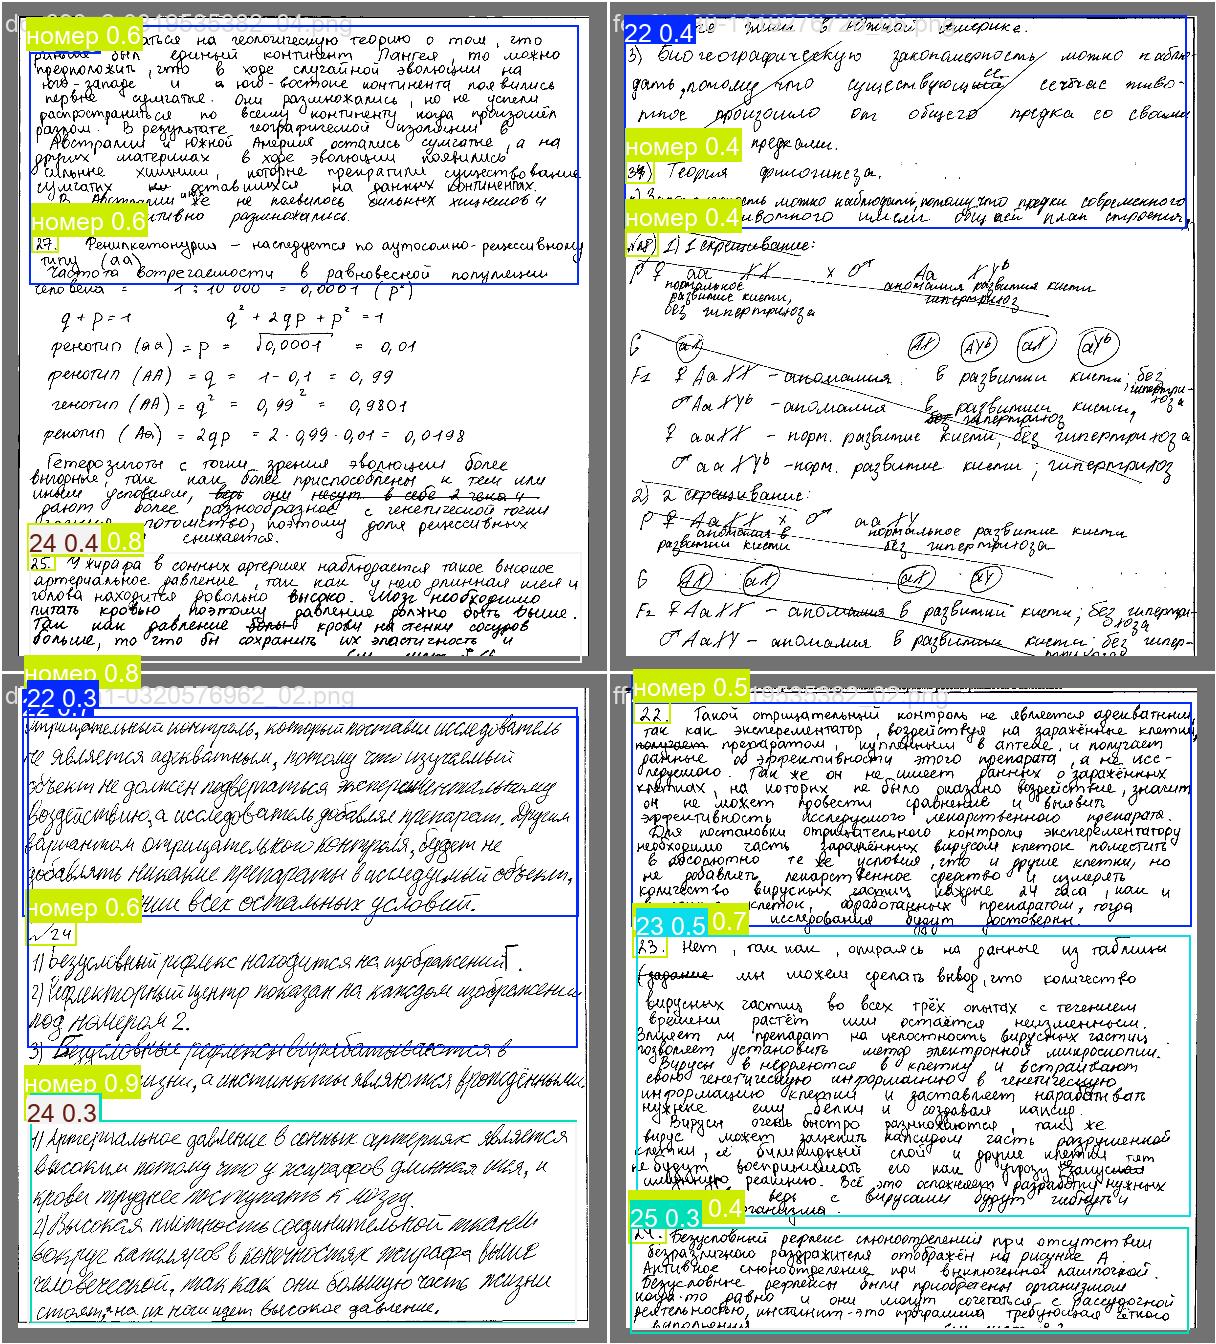 номер 0.6
ться на геологическую теорию о том, что
раньше был единый континент Пангея, то можно
предположить, что в ходе случайной эволюции на
юго-западе и юго-востоке континента появились
первые сумчатые. Они размножались, но не успели
распространиться по всему континенту когда произошёл
разлом. В результате географической изоляции в
Австралии и Южной Америке остались сумчатые, а на
других материках в ходе эволюции появились
сильные хищники, которые прекратили существование
сумчатых на данных континентах.
В Австралии же не появилось сильных хищников и
номер 0.6
активно размножались.
27. Фенилкетонурия – наследуется по аутосомно-рецессивному
типу (aa)
Частота встречаемости в равновесной популяции
человека = 1:10 000 = 0,0001 (p²)
q + p = 1 q² + 2qp + p² = 1
фенотип (aa) = p = √0,0001 = 0,01
фенотип (AA) = q = 1 - 0,1 = 0,99
генотип (AA) = q² = 0,99² = 0,9801
фенотип (Aa) = 2qp = 2·0,99·0,01 = 0,0198
Гетерозиготы с точки зрения эволюции более
выгодные, так как более приспособлены к тем или
иным условиям, ведь они несут в себе 2 гена и
дают более разнообразное с генетической точки
потомство, поэтому доля рецессивных
снижается.
24 0.4 0.8
25. У жирафа в сонных артериях наблюдается такое высокое
артериальное давление, так как у него длинная шея и
голова находится довольно высоко. Мозг необходимо
питать кровью поэтому давление должно быть выше.
Так как давление крови на стенки сосудов
больше, то что бы сохранить их эластичность и
22 0.4
же жили в Южной Америке.
3) Биогеографическую закономерность можно наблю-
дать, потому что существующее сейчас живо-
тное произошло от общего предка со своими
номер 0.4
предками.
Теория филогинеза.
можно наблюдать, потому что предки современного
номер 0.4
животного имели общий план строения,
№28) 1) 1 скрещивание:
P ♀ aa XX x ♂ Aa XYᵇ
нормальное аномалия развития кисти
развитие кисти, гипертрихоз
без гипертрихоза
G aX AX AYᵇ aX aYᵇ
F₁ ♀ AaXX – аномалия в развитии кисти; без гипертри-
хоза
♂ AaXYᵇ – аномалия в развитии кисти,
гипертрихоз
♀ aaXX – норм. развитие кисти, без гипертрихоза
♂ aaXYᵇ – норм. развитие кисти; гипертрихоз
2) 2 скрещивание:
P ♀ AaXX x ♂ aaXY
аномалия в нормальное развитие кисти
развитии кисти без гипертрихоза
G AX aX aX aY
F₂ ♀ AaXX – аномалия в развитии кисти; без гипертри-
хоза
♂ AaXY – аномалия в развитии кисти; без гипер-
номер 0.8
22 0.3
Отрицательный контроль, который поставил исследователь
не является адекватным, потому что изучаемый
объект не должен подвергаться экспериментальному
воздействию, а исследователь добавлял препарат. Другим
вариантом отрицательного контроля, будет не
добавлять никакие препараты в исследуемый объект,
номер 0.6
нии всех остальных условий.
№24
1) Безусловный рефлекс находится на изображении Г.
2) Рефлекторный центр показан на каждом изображении
под номером 2.
3) Безусловные рефлексы вырабатываются в
номер 0.9
жизни, а инстинкты являются врождёнными
24 0.3
1) Артериальное давление в сонных артериях является
высоким потому что у жирафов длинная шея, и
крови труднее поступать к мозгу.
2) Высокая плотность соединительной ткани
вокруг капиляров в конечностях жирафа выше
человеческой, так как они большую часть жизни
стоят, на их ноги идет высокое давление.
номер 0.5
22. Такой отрицательный контроль не является адекватным,
так как эксперементатор, воздействуя на заражённые клетки,
получает препаратом, купленным в аптеке, и получает
данные об эффективности этого препарата, а не исс-
ледуемого. Так же он не имеет данных о заражённых
клетках, на которых не было оказано воздействие, значит
он не может провести сравнение и выявить
эффективность исследуемого лекарственного препарата.
Для постановки отрицательного контроля эксперементатору
необходимо часть заражённых вирусом клеток поместить
в абсолютно те же условия, что и другие клетки, но
не добавлять лекарственное средство и измерять
количество вирусных частиц каждые 24 часа, как и
номер 0.7
клеток, обработанных препаратом, тогда
исследования будут достоверны.
23 0.5
23. Нет, так как, опираясь на данные из таблицы
(задание мы можем сделать вывод, что количество
вирусных частиц во всех трёх опытах с течением
времени растёт или остаётся неизменным.
Влияет ли препарат на целостность вирусных частиц
позволяет установить метод электронной микроскопии.
Вирусы внедряются в клетку и встраивают
свою генетическую информацию в генетическую
информацию клетки и заставляет нарабатывать
нужные ему белки и создавая капсид.
Вирусы очень быстро размножаются, так же
вирус может зацепить капсидом часть разрушенной
клетки, её билипидный слой и другие клетки
не будут воспринимать его как угрозу
иммунную реакцию. Всё это осложняет разработку нужных
номер 0.4
ведь с вирусами будут гибнуть и
организма.
25 0.3
24. Безусловный рефлекс слюноотделения при отсутствии
безразличного раздражителя отображён на рисунке А
Активное слюноотделение при включённой лампочкой.
Безусловные рефлексы были приобретены организмом
когда-то давно и они могут сочетаться с рассудочной
деятельностью, инстинкт – это программа требующая чёткого
выполнения